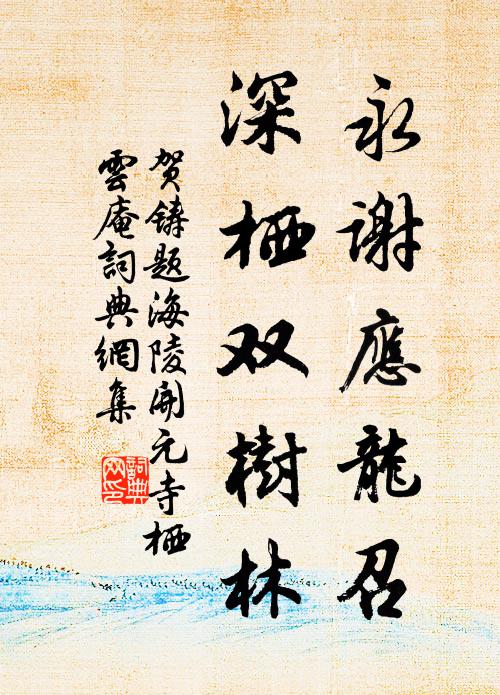 永谢應龍召
深栖双樹林
贺鑄题海陵開元寺栖
雲庵詞典網集
詞典网印